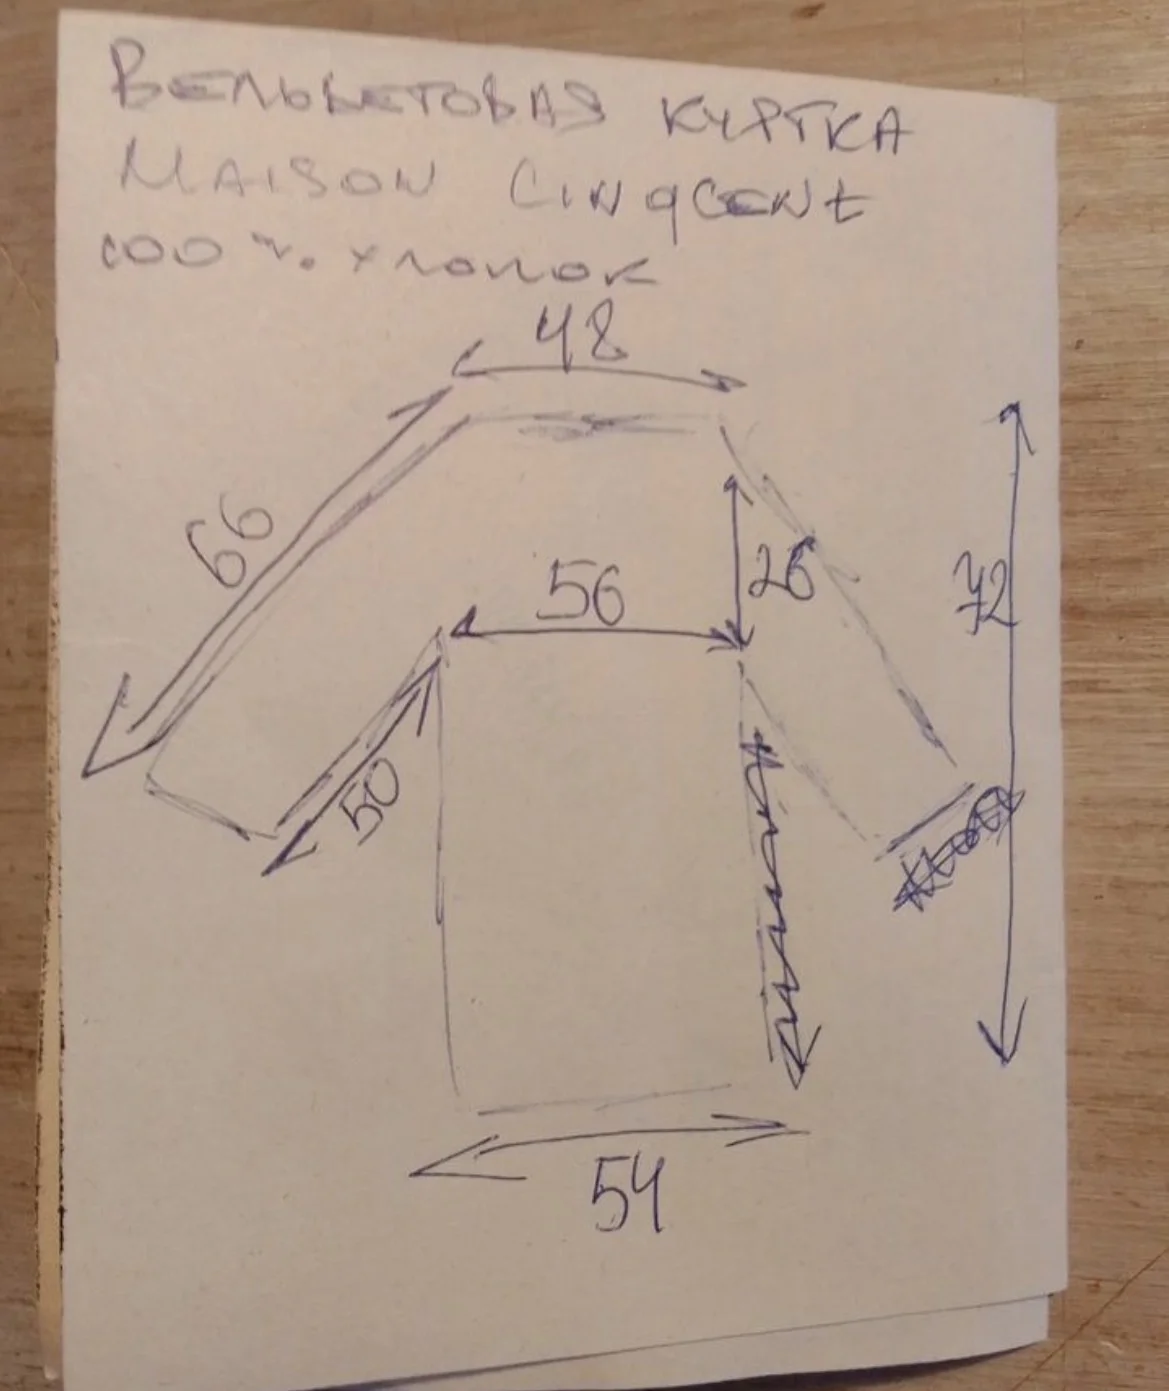 ВЕЛЬВЕТОВАЯ КУРТКА
MAISON CINQCENT
100% хлопок
48
66
56
26
72
50
54